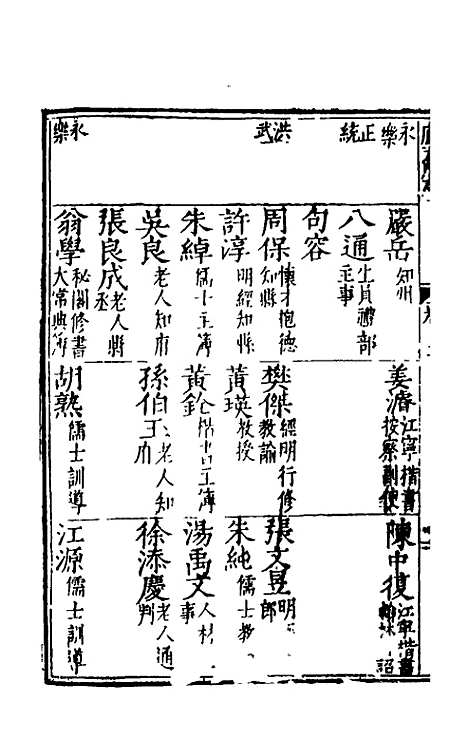 永樂 嚴岳 知州 姜濬 江寧楷書按察副使 陳中復 江寧楷書 詔
正統 八通 生員禮部主事
句容
洪武 周保 懷才抱德知縣 樊傑 經明行修教諭 張文昱 明 郎
許淳 明經知縣 黃瑛 教授 朱純 儒士教
朱綽 儒士主簿 黃 楷書主簿 湯禹文 人材
吳良 老人知府 孫伯玉 老人知府 徐添慶 老人通判
張良成 老人縣丞
永樂 翁學 秘閣修書大常典簿 胡熟 儒士訓導 江源 儒士訓導